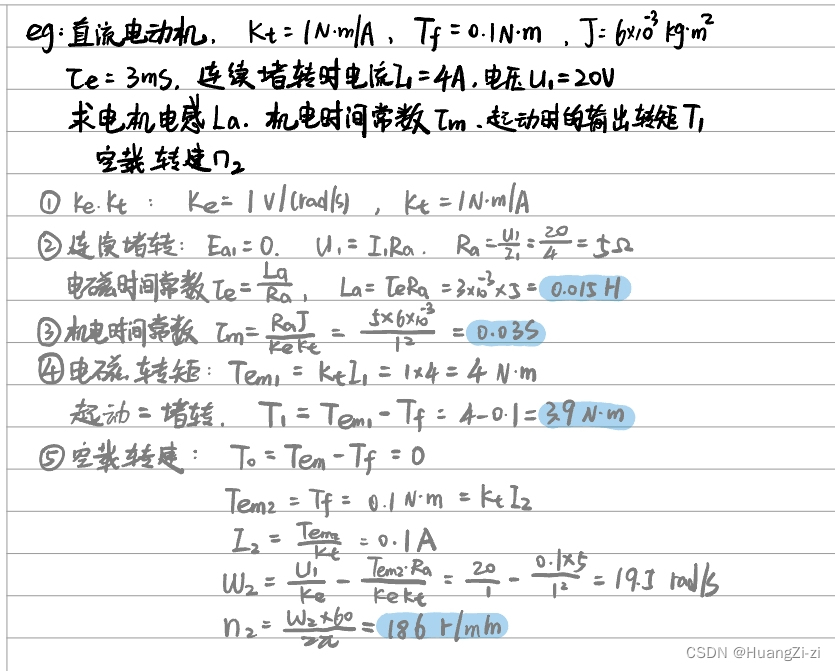 eg: 直流电动机, Kt = 1N·m/A、Tf = 0.1N·m, J = 6×10⁻³ kg·m²
τe = 3ms, 连续堵转时电流I₁=4A, 电压U₁=20V
求电机电感La. 机电时间常数τm、起动时的输出转矩T₁
空载转速n₂
① Ke.Kt: Ke = 1 V/(rad/s), Kt = 1N·m/A
② 连续堵转: Ea₁ = 0. U₁ = I₁Ra. Ra = U₁/I₁ = 20/4 = 5Ω
电磁时间常数τe = La/Ra, La = τeRa = 3×10⁻³×5 = 0.015H
③ 机电时间常数 τm = RaJ/KeKt = 5×6×10⁻³/1² = 0.03S
④ 电磁转矩: Tem₁ = KtI₁ = 1×4 = 4 N·m
起动 = 堵转, T₁ = Tem₁ - Tf = 4-0.1 = 3.9 N·m
⑤ 空载转速: T₀ = Tem - Tf = 0
Tem₂ = Tf = 0.1 N·m = KtI₂
I₂ = Tem₂/Kt = 0.1A
W₂ = U₁/Ke - Tem₂·Ra/KeKt = 20/1 - 0.1×5/1² = 19.5 rad/s
n₂ = W₂×60/2π = 186 r/min
CSDN @HuangZi-zi